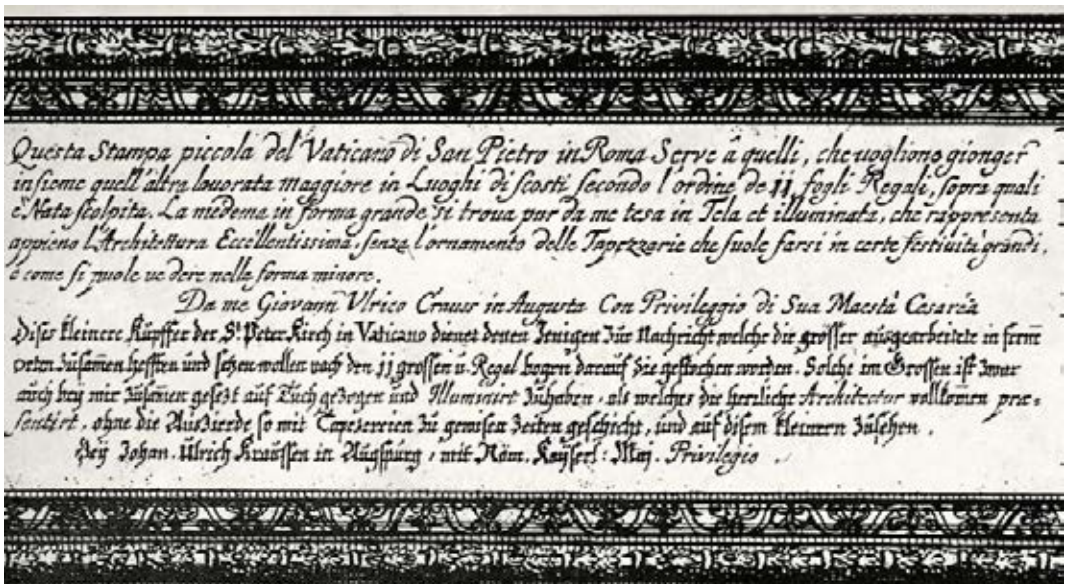 Questa Stampa piccola del Vaticano di San Pietro in Roma Serve â quelli, che uogliono gionger
insieme quell'altra lauorata maggiore in Luoghi di scosti secondo l'ordine de jj fogli Regali, sopra quali
e' Nata scolpita. La medema in forma grande si troua pur da me tesa in Tela et illuminata, che rappresenta
appieno l'Architettura Eccellentissima, senza l'ornamento delle Tapezzarie che suole farsi in certe festiuità grandi,
e come si puole ue dere nella forma minore.
Da me Giovann Vlrico Crauss in Augusta Con Privileggio di Sua Maestà Cesarèa
Dises kleinere Kupffer der St Peter Kirch in Vaticano dienet denen Jenigen Zur Nachricht welche die grösser ausgearbeitete in ferne
orten Zusam̄en hefften und sehen wollen nach den jj grossen u. Regal bogen darauf die gestochen worden. Solche im Grossen ist Zwar
auch bey mir Zusam̄en gesezt auf Tuch gezogen und Illuminirt Zuhaben, als welches die herrliche Architectur vollkom̄en præ-
sentirt, ohne die Auszierde so mit Tapezereien Zu gewisen Zeiten geschicht, und auf disem kleinern Zusehen.
Beÿ Johan. Ulrich Kraussen in Augspurg, mit Röm. Kaÿserl: Maj. Privilegio.